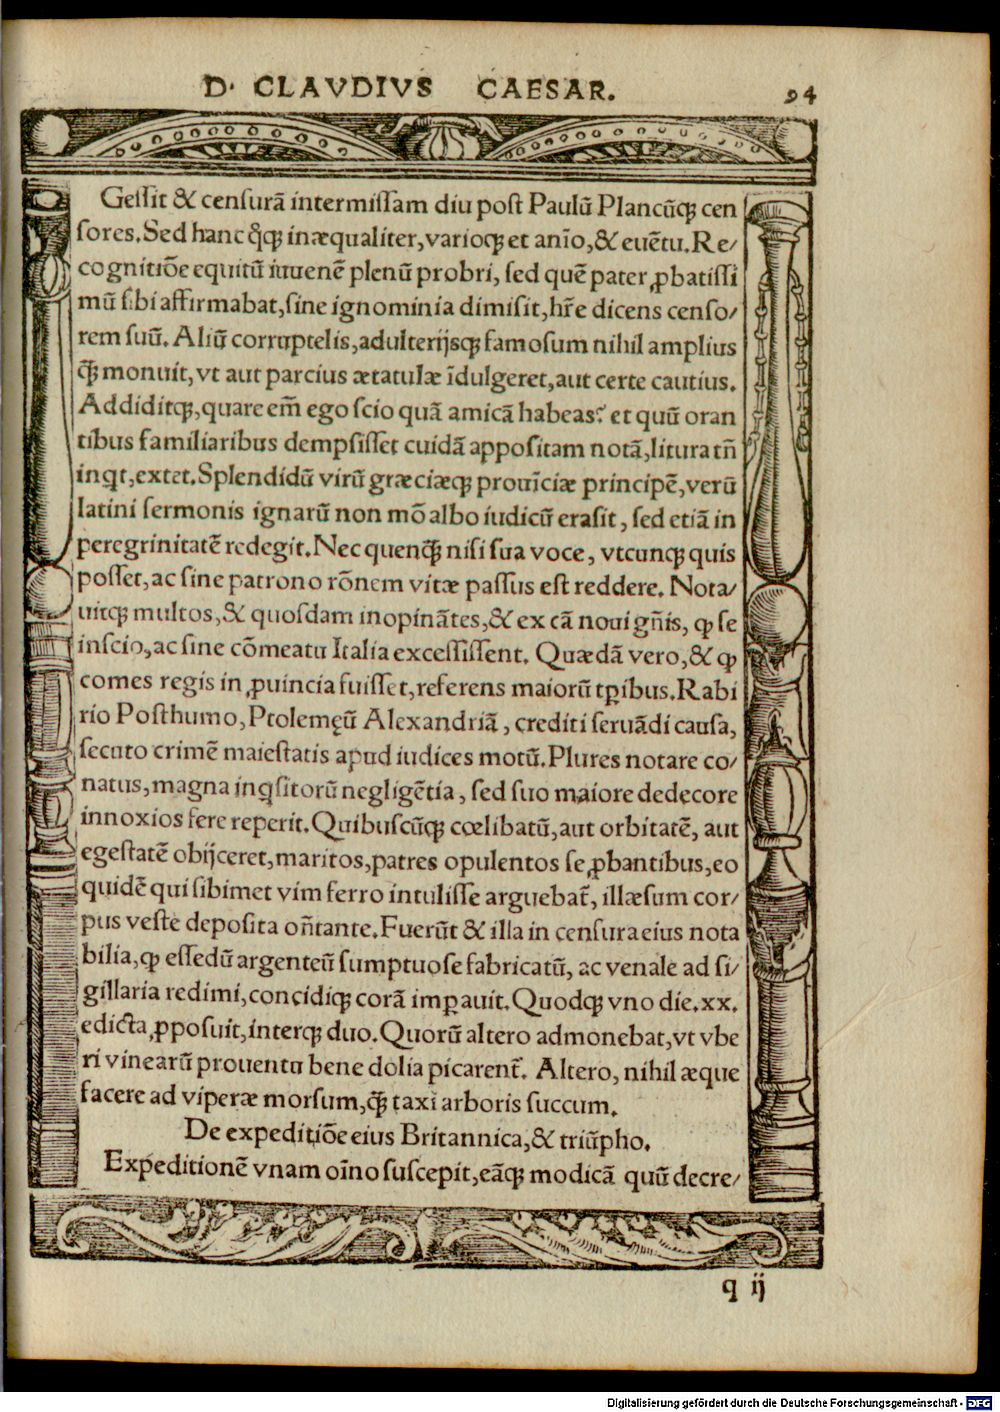 D. CLAVDIVS CAESAR. 94
Gessit & censurā intermissam diu post Paulū Plancūq; cen
sores. Sed hanc q̄q; inæqualiter, varioq; et anīo, & euētu. Re/
cognitiōe equitū iuuenē plenū probri, sed quē pater ꝓbatissi
mū sibi affirmabat, sine ignominia dimisit, hr̄e dicens censo/
rem suū. Aliū corruptelis, adulterijsq; famosum nihil amplius
q̄ꝫ monuit, vt aut parcius ætatulæ īdulgeret, aut certe cautius.
Addiditq;, quare em̄ ego scio quā amicā habeas? et quū oran
tibus familiaribus dempsisset cuidā appositam notā, litura tñ
inqt, extet. Splendidū virū græciæq; prouīciæ principē, verū
latini sermonis ignarū non mō albo iudicū erasit, sed etiā in
peregrinitatē redegit. Nec quenq̄ꝫ nisi sua voce, vtcunq; quis
posset, ac sine patrono rōnem vitæ passus est reddere. Nota/
uitq; multos, & quosdam inopināntes, & ex cā noui gñis, ꝙ se
inscio, ac sine cōmeatu Italia excessissent. Quædā vero, & ꝙ
comes regis in ꝓuincia fuisset, referens maiorū tꝑibus. Rabi
rio Posthumo, Ptolemęū Alexandriā, crediti seruādi causa,
secuto crimē maiestatis apud iudices motū. Plures notare co/
natus, magna inq̇sitorū negligētia, sed suo maiore dedecore
innoxios fere reperit. Quibuscūq; cœlibatū, aut orbitatē, aut
egestatē obijceret, maritos, patres opulentos se ꝓbantibus, eo
quidē qui sibimet vim ferro intulisse arguebat̄, illæsum cor/
pus veste deposita oñtante. Fuerūt & illa in censura eius nota
bilia, ꝙ essedū argenteū sumptuose fabricatū, ac venale ad si/
gillaria redimi, concidiq; corā imꝑauit. Quodq; vno die. xx.
edicta ꝓposuit, interq; duo. Quorū altero admonebat, vt vbe
ri vinearū prouentu bene dolia picarent̄. Altero, nihil æque
facere ad viperæ morsum, q̄ꝫ taxi arboris succum.
De expeditiōe eius Britannica, & triūpho.
Expeditionē vnam oīno suscepit, eāq; modicā quū decre/
q ij
Digitalisierung gefördert durch die Deutsche Forschungsgemeinschaft - DFG